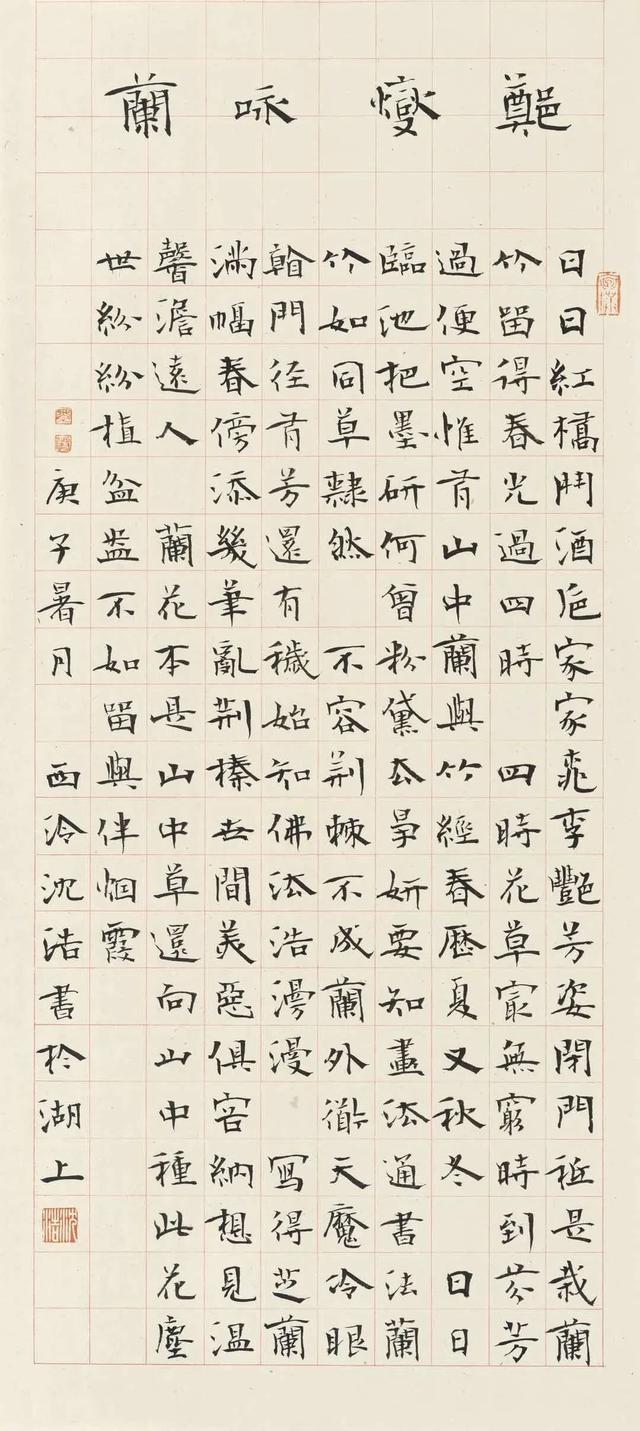 鄭燮咏蘭
日日紅橋鬥酒巵家家桃李豔芳姿閉門祗是栽蘭
竹留得春光過四時 四時花草最無窮時到芬芳
過便空惟有山中蘭與竹經春歷夏又秋冬 日日
臨池把墨研何曾粉黛去爭妍要知畫法通書法蘭
竹如同草隸然 不容荊棘不成蘭外衜天魔冷眼
看門徑有芳還有穢始知佛法浩漫漫 寫得芝蘭
滿幅春傍添幾筆亂荊榛世間美惡俱容納想見溫
馨澹遠人 蘭花本是山中草還向山中種此花塵
世紛紛植盆盎不如留與伴烟霞
庚子暑月 西泠沈浩書於湖上